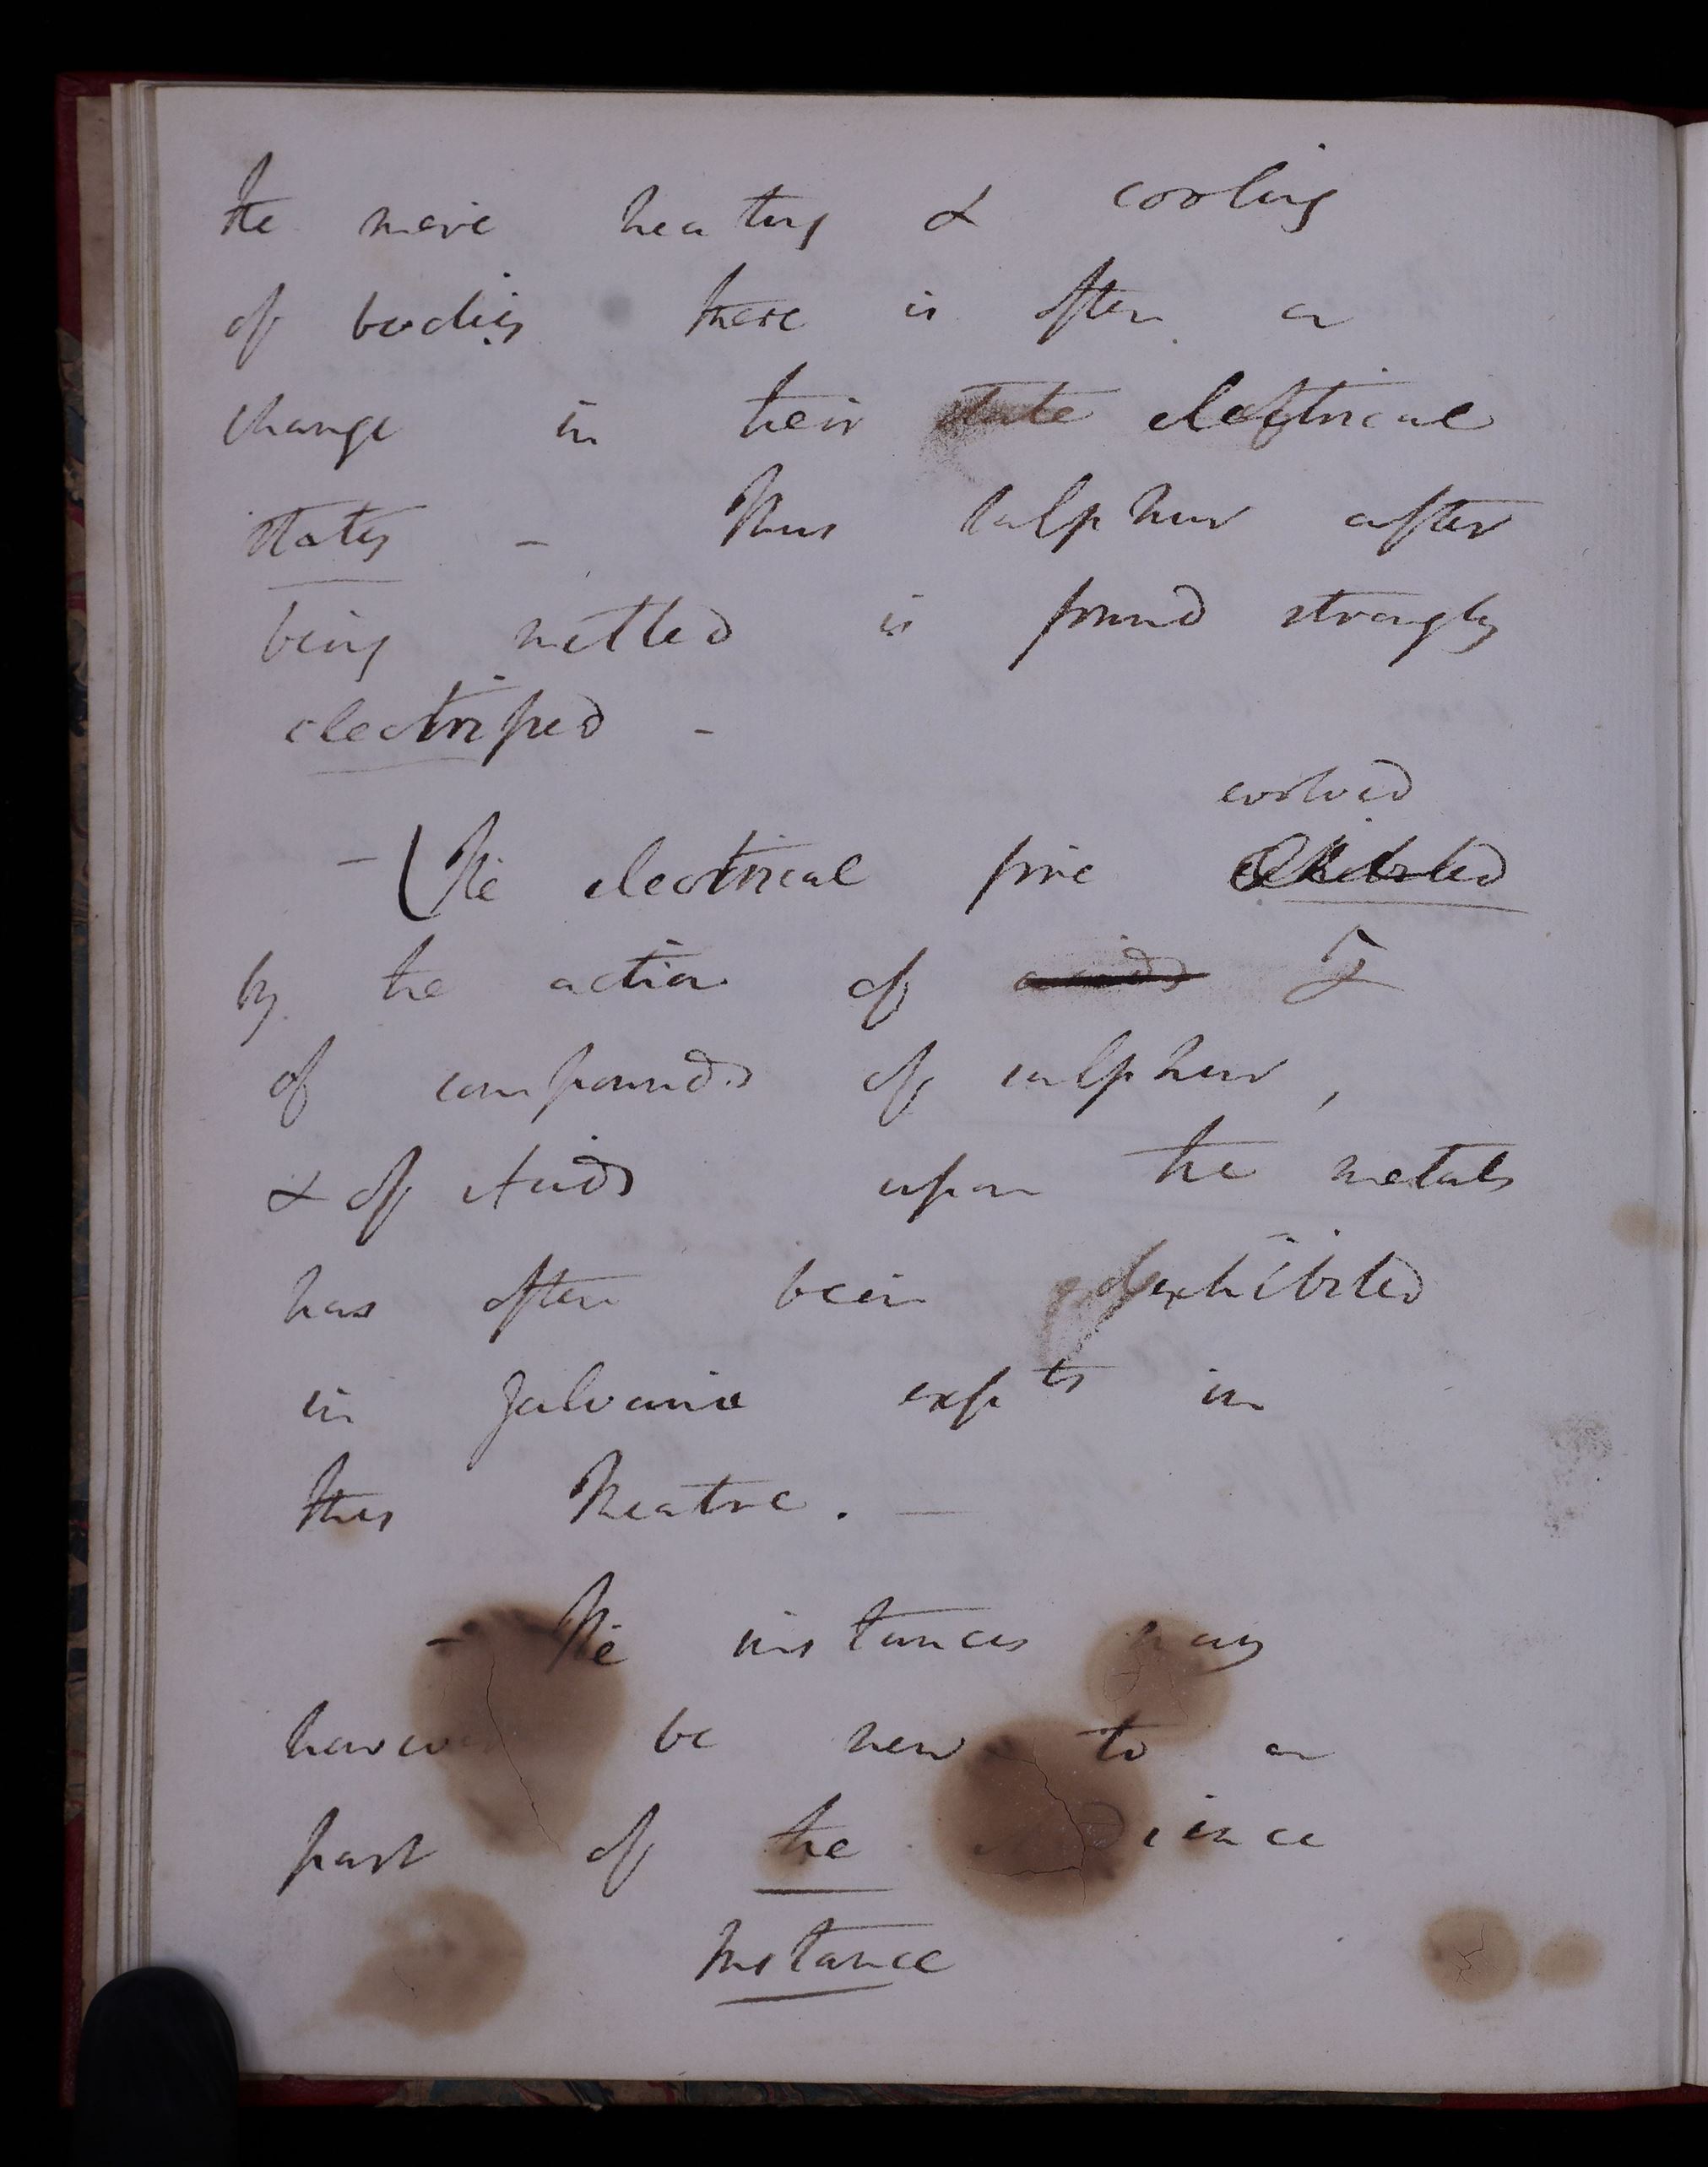 the mere heating & cooling
of bodies there is often a
change in their state electrical
states - Thus sulphur after
being melted is found strongly
electrified -
evolved
- (The electrical fire Exhibited
by the action of acids
of compounds of sulphur,
& of Acids upon the metals
has often been exhibited
in Galvanic expts in
this Theatre. -
- The instances may
however be new to a
part of the audience
Instance